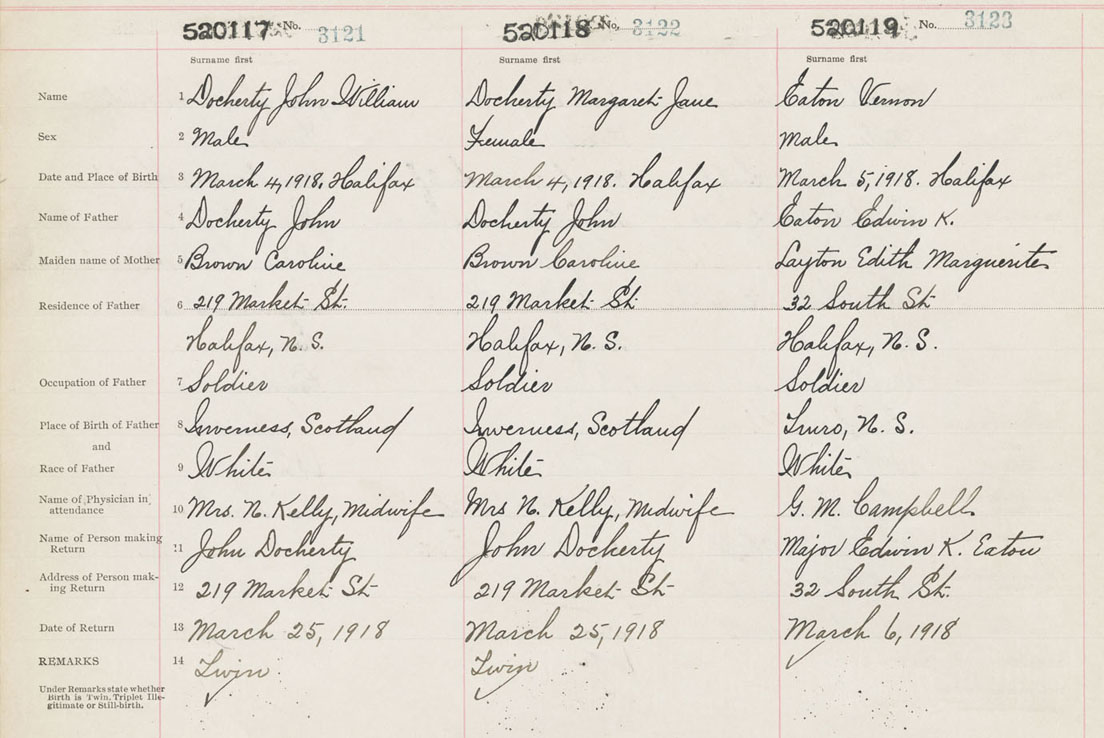 520117 No. 3121 520118 No. 3122 520119 No. 3123
Surname first Surname first Surname first
Name 1 Docherty John William Docherty Margaret Jane Eaton Vernon
Sex 2 Male Female Male
Date and Place of Birth 3 March 4, 1918. Halifax March 4, 1918. Halifax March 5, 1918. Halifax
Name of Father 4 Docherty John Docherty John Eaton Edwin K.
Maiden name of Mother 5 Brown Caroline Brown Caroline Layton Edith Marguerite
Residence of Father 6 219 Market St. 219 Market St. 32 South St
Halifax, N. S. Halifax, N. S. Halifax, N. S.
Occupation of Father 7 Soldier Soldier Soldier
Place of Birth of Father 8 Inverness, Scotland Inverness, Scotland Truro, N. S.
and
Race of Father 9 White White White
Name of Physician in attendance 10 Mrs. N. Kelly, Midwife Mrs N. Kelly, Midwife G. M. Campbell
Name of Person making Return 11 John Docherty John Docherty Major Edwin K. Eaton
Address of Person mak-
ing Return 12 219 Market St 219 Market St 32 South St.
Date of Return 13 March 25, 1918 March 25, 1918 March 6, 1918
REMARKS 14 Twin Twin
Under Remarks state whether
Birth is Twin, Triplet Ille-
gitimate or Still-birth.